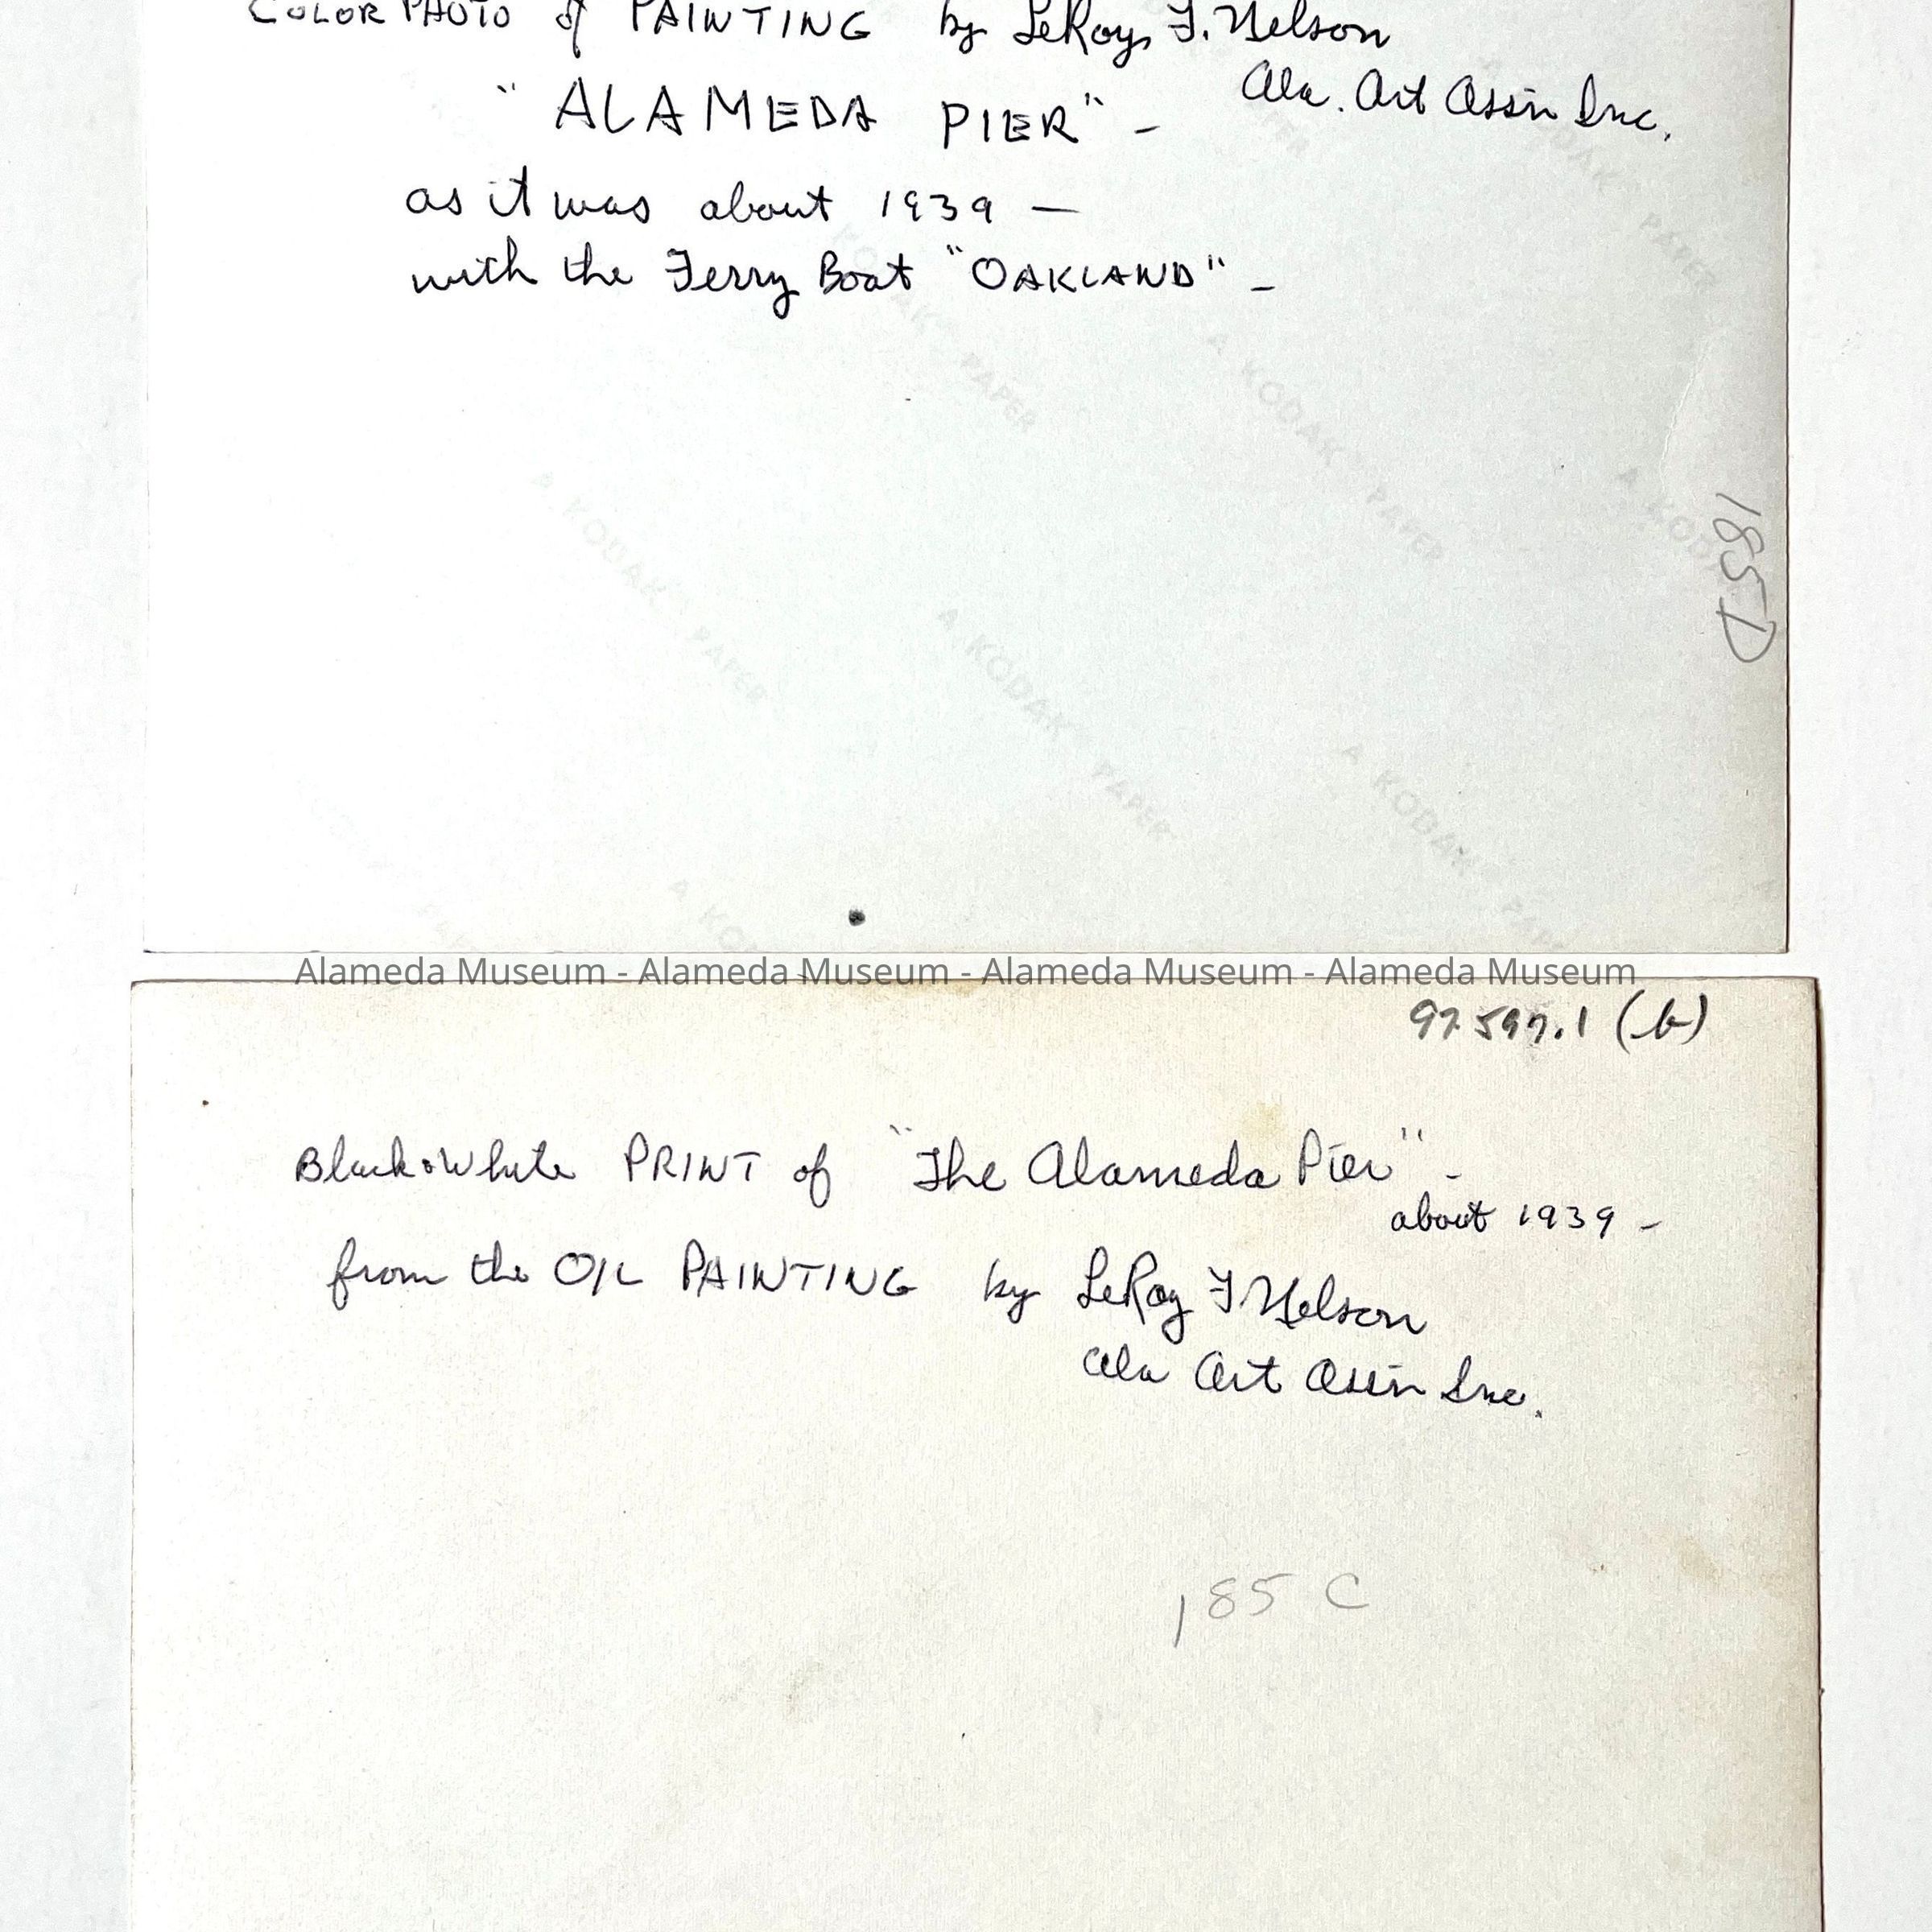 COLOR PHOTO of PAINTING by LeRoy F. Nelson
"ALAMEDA PIER" - Ala. Art Ass'n Inc.
as it was about 1939 —
with the Ferry Boat "OAKLAND" -
A KODAK PAPER
185D
Alameda Museum - Alameda Museum - Alameda Museum - Alameda Museum
97.597.1 (b)
Black & White PRINT of "The Alameda Pier" -
about 1939 -
from the OIL PAINTING by LeRoy F Nelson
Ala Art Ass'n Inc.
185 C